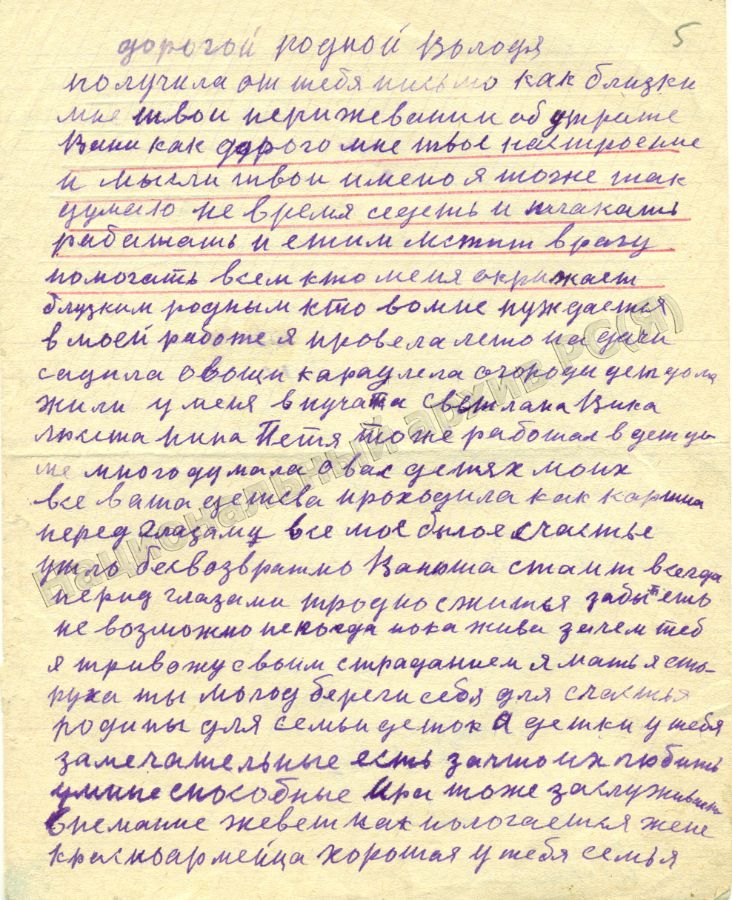 5
дорогой родной Володя
получила от тебя письмо как близки
мне твои перижевании об утрате
Вани как дорого мне твое настроение
и мысли твои имено я тоже так
думаю не время седеть и плакать
работать и етим мстит врагу
помогать всем кто меня окружает
близким родным кто вомне нуждаетья
в моей работе я провела лето на дачи
садила овощи караулела огороди детдома
жили у меня внучата Светлана Вика
Нина Петя тоже работал в детдо
ме много думала о вас детях моих
все ваша детсва проходила как картина
перед глазаму все мое былое счастье
ушло бесвозвратно Ванюша стаит всегда
перид глазами тродно сжитья забытеть
не возможно некогда пока жива зачем теб
я тривожу своим страданием я мать я ста-
руха ты молод береги себя для счастья
родины для семьи деток а детки у тебя
замечательные есть зачто их любить
умние способные Ира тоже заслуживает
внемание жевет как пологаетья жене
красноармейца хорошая у тебя семья
Национальный архив РС(Я)